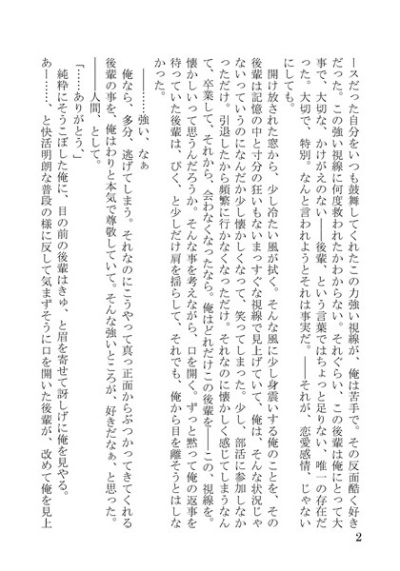 ースだった自分をいつも鼓舞してくれたこの力強い視線が、俺は苦手で。その反面酷く好き
だった。この強い視線に何度救われたかわからない。それぐらい、この後輩は俺にとって大
事で、大切な、かけがえのない――後輩、という言葉ではちょっと足りない、唯一の存在だ
った。大切で、特別。なんと言われようとそれは事実だ。――それが、恋愛感情、じゃない
にしても。
開け放された窓から、少し冷たい風が拭く。そんな風に少し身震いする俺のことを、その
後輩は記憶の中と寸分の狂いもないまっすぐな視線で見上げていて、俺は、そんな状況じゃ
ないっていうのになんだか少し懐かしくなって、笑ってしまった。少し、部活に参加しなか
っただけ。引退したから頻繁に行かなくなっただけ。それなのに懐かしく感じてしまうなん
て、卒業して、それから、会わなくなったなら。俺はどれだけこの後輩を――この、視線を。
懐かしいって思うんだろうか。そんな事を考えながら、口を開く。ずっと黙って俺の返事を
待っていた後輩は、びく、と少しだけ肩を揺らして、それでも、俺から目を離そうとはしな
かった。
――――強い、なぁ
俺なら、多分、逃げてしまう。それなのにこうやって真っ正面からぶつかってきてくれる
後輩の事を、俺はわりと本気で尊敬していて。そんな強いところが、好きだなぁ、と思った。
――――人間、として。
「……ありがとう、」
純粋にそうこぼした俺に、目の前の後輩はきゅ、と眉を寄せて訝しげに俺を見やる。
あー……、と快活明朗な普段の様に反して気まずそうに口を開いた後輩が、改めて俺を見上
2